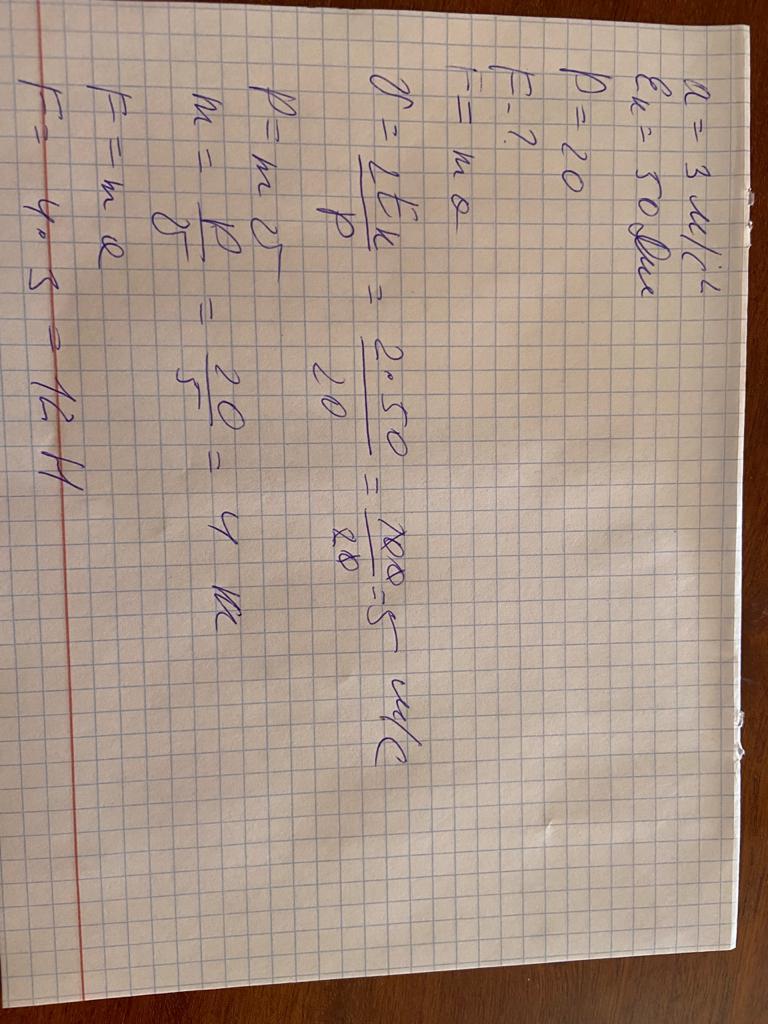 a = 3 м/с²
Eк = 50 Дж
p = 20
F - ?
F = m a
v = 2Eк / p = 2·50 / 20 = 100 / 20 = 5 м/с
p = m v
m = p / v = 20 / 5 = 4 кг
F = m a
F = 4·3 = 12 Н